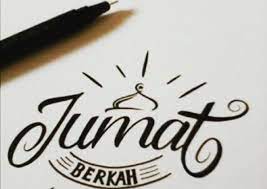 Jumat
BERKAH